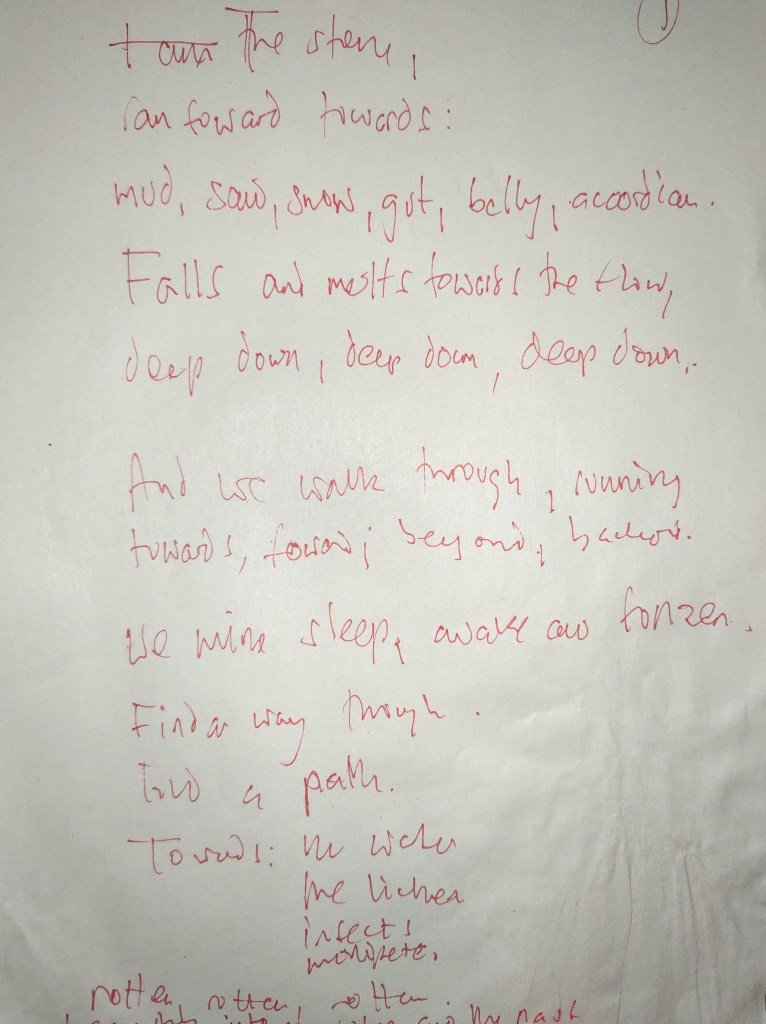 The
ran foward towards:
mud, saw, snow, gut, belly, accordian.
Falls and melts towards the flow,
deep down, deep down, deep down,.
And we walk through, running
towards, foward; beyond,
We mine sleep, awake and fonzen.
Find a way through.
find a path.
Towards: the
the lichen
insects
rotten, rotten, rotten.